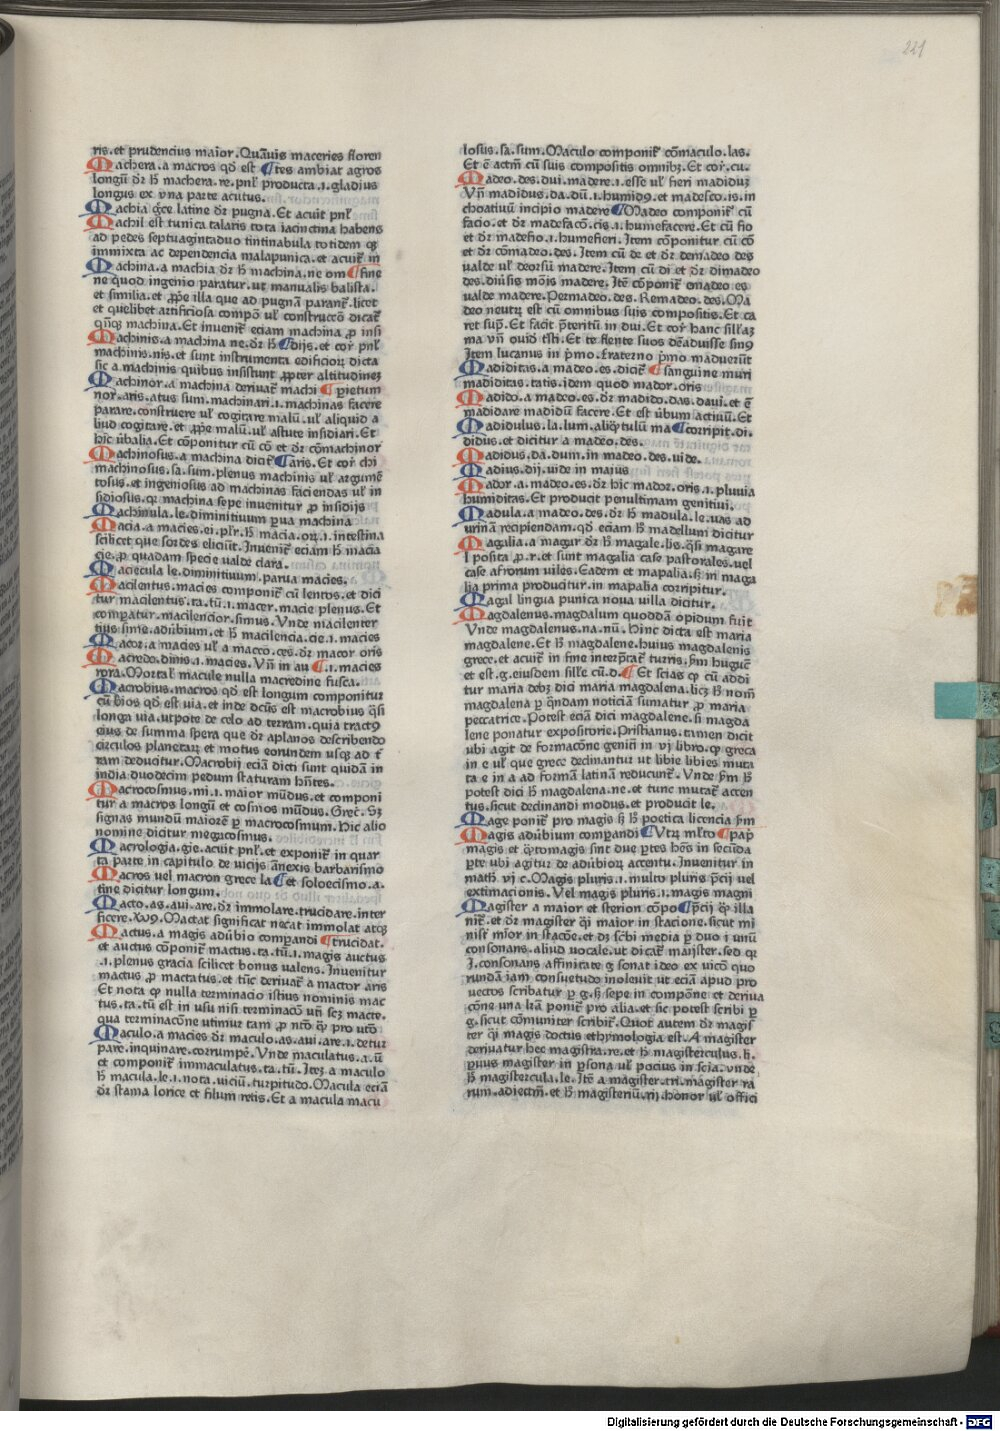 221
ris.et prudencius maior.Quāuis maceries floren
Machera.a macros qď est ¶tes ambiat agros
longū dꝛ h̄ machera.re.pnľ producta.i.gladius
longus ex vna parte acutus.
Machia g̃ce latine dꝛ pugna.Et acuit pnľ
Machil est tunica talaris tota iacinctina habens
ad pedes septuagintaduo tintinabula totidem qꝫ
immixta ac dependencia malapunica.et acuit̃ in
Machina.a machia dꝛ h̄ machina.ne om ¶fine
ne quod ingenio paratur.ut manualis balista.
et similia.et ꝓpe illa que ad pugnā parant̃.licet
et quelibet artificiosa compō ul̓ construccō dicat̃
qn̄qꝫ machina.Et inuenit̃ eciam machina ꝓ insi
Machinis.a machina ne.dꝛ h̄ ¶dijs.et cor̃ pnľ
machinis.nis.et sunt instrumenta edificioꝝ dicta
sic a machinis quibus insistunt ꝓpter altitudinez
Machinor.a machina deriuat̃ machi ¶pietum
nor.aris.atus sum.machinari.i.machinas facere
parare.construere ul̓ cogitare malū.ul̓ aliquid a
liud cogitare.et ꝓpe malū.ul̓ astute insidiari.Et
hic ūbalia.Et cōponitur cū cō et dꝛ cōmachinor
Machinosus.a machina dicit̃ ¶aris.Et cor̃ chi
machinosus.sa.sum.plenus machinis ul̓ argumē
tosus.et ingeniosus ad machinas faciendas ul̓ in
sidiosus.qꝛ machina sepe inuenitur ꝓ insidijs
Machinula.le.diminitiuum ꝑua machina
Macia.a macies.ei.plr̃.h̄ macia.oꝝ.i.intestina
scilicet que sordes eliciūt.Inuenit̃ eciam h̄ macia
cie.ꝓ quadam specie ualde clara.
Maciecula le.diminitiuum.parua macies.
Macilentus.macies componit̃ cū lentos.et dici
tur macilentus.ta.tū.i.macer.macie plenus.Et
comꝑatur.macilencior.simus.Vnde macilenter
tius sime.adūbium.et h̄ macilencia.cie.i.macies
Macor.a macies ul̓ a macco.ces.dꝛ macor oris
Macredo.dinis.i.macies.Vn̄ in au ¶.i.macies
rora.Mortal̓ macule nulla macredine fusca.
Macrobius.macros qď est longum componitur
cū bios qď est uia.et inde dc̄us est macrobius q̄si
longa uia.utpote de celo ad terram.quia tractꝰ
eius de summa spera que dꝛ aplanos describendo
circulos planetaꝝ et motus eorundem usqꝫ ad t̃
ram deducitur.Macrobij eciā dicti sunt quidā in
india duodecim pedum staturam hn̄tes.
Macrocosmus.mi.i.maior mūdus.et componi
tur a macros longū et cosmos mūdus.Grec̄.Sꝫ
signas mundū maiorē ꝑ macrocosmum.Hic alio
nomine dicitur megacosmus.
Macrologia.gie.acuit pnľ.et exponit̃ in quar
ta parte in capitulo de vicijs ānexis barbarismo
Macros uel macron grece la ¶et soloecismo.a.
tine dicitur longum.
Macto.as.aui.are.dꝛ immolare.trucidare.inter
ficere.Xꝰ.Mactat significat necat immolat atqꝫ
Mactus.a magis adūbio comꝑandi ¶trucidat.
et auctus cōponit̃ mactus.ta.tū.i.magis auctus
.i.plenus gracia scilicet bonus ualens.Inuenitur
mactus ꝓ mactatus.et tūc deriuat̃ a mactor aris
Et nota qꝫ nulla terminacio istius nominis mac
tus.ta.tū est in usu nisi terminacō uti sez macte.
qua terminacōne utimur tam ꝓ ntō q̄ꝫ ꝓ utō
Maculo.a macies dꝛ maculo.as.aui.are.i.detur
pare.inquinare.corrumpē.Vnde maculatus.a.ū
et componit̃ immaculatus.ta.tū.Itez a maculo
h̄ macula.le.i.nota.viciū.turpitudo.Macula eciā
dꝛ stama lorice et filum retis.Et a macula macu
losus.sa.sum.Maculo componit̃ cōmaculo.las.
Et ē actm̄ cū suis compositis omnibꝫ.Et cor̃.cu.
Madeo.des.dui.madere.i.esse ul̓ fieri madiduz
Vn̄ madidus.da.dū.i.humidꝰ.et madesco.is.in
choatiuū incipio madere ¶Madeo componit̃ cū
facio.et dꝛ madefacō.cis.i.humefacere.Et cū fio
et dꝛ madefio.i.humefieri.Item cōponitur cū cō
et dꝛ cōmadeo.des.Item cū de et dꝛ demadeo des
ualde ul̓ deorsū madere.Item cū di et dꝛ dimadeo
des.diūsis mōis madere.Itē cōponit̃ emadeo es
ualde madere.Permadeo.des.Remadeo.des.Ma
deo neutꝝ est cū omnibus suis compositis.Et ca
ret sup̄.Et facit p̄teritū in dui.Et cor̃ hanc sill̓az
ma vn̄ ouid tr̄sti.Et te flente suos demaduisse sinꝰ
Item lucanus in p̄mo.fraterno p̄mo maduerūt
Madiditas.a madeo.es.dicit̃ ¶sanguine muri
madiditas.tatis.idem quod mador.oris
Madido.a madeo.es.dꝛ madido.das.daui.et ē
madidare madidū facere.Et est ūbum actiuū.Et
Madidulus.la.lum.aliq̄ꝫtulū ma ¶corripit.di.
didus.et dicitur a madeo.des.
Madidus.da.dum.in madeo.des.uide.
Madius.dij.uide in maius
Mador.a.madeo.es.dꝛ hic mador.oris.i.pluuia
humiditas.Et producit penultimam genitiui.
Madula.a madeo.des.dꝛ h̄ madula.le.uas ad
urinā recipiendam.qď eciam h̄ madellum dicitur
Magalia.a magar dꝛ h̄ magale.lis.q̄si magare
l posita ꝓ.r.et sunt magalia case pastorales.uel
case afrorum uiles.Eadem et mapalia.sꝫ in maga
lia prima producitur.in mapalia corripitur.
Magal lingua punica noua uilla dicitur.
Magdalenus.magdalum quoddā opidum fuit
Vnde magdalenus.na.nū.Hinc dicta est maria
magdalene.Et h̄ magdalene.huius magdalenis
grece.et acuit̃ in fine interp̄tat̃ turris.p̄m huguē
et est.g.eiusdem sill̓e cū.d. ¶Et scias qꝫ cū addi
tur maria debꝫ dici maria magdalena.licꝫ h̄ nom̄
magdalena ꝑ q̄ndam noticiā sumatur ꝓ maria
peccatrice.Potest eciā dici magdalene.si magda
lene ponatur expositorie.Priscianus.tamen dicit
ubi agit de formacōne genitī in vj libro.qꝫ greca
in e ul̓ que grece declinantur ut libie libies muta
ta e in a ad formā latinā reducunt̃.Vnde p̄m h̄
potest dici h̄ magdalena.ne.et tunc mutat̃ accen
tus.sicut declinandi modus.et producit le.
Mage ponit̃ pro magis sꝫ h̄ poetica licencia p̄m
Magis adūbium comꝑandi ¶Vtrꝫ ml̓to ¶pap̃
magis et q̄ꝫtomagis sint due ꝑtes hēs in secūda
ꝑte ubi agitur de adūbioꝝ accentu.Inuenitur in
math̄ vj c̄.Magis pluris.i.multo pluris p̄cij uel
extimacionis.Vel magis pluris.i.magis magni
Magister a maior et sterion cōpo ¶p̄cij q̄ꝫ illa
nit̃.et dꝛ magister q̄i maior in stacione.sicut mi
nist̃ mior in stacōe.et dꝫ sc̄bi media ꝑ duo i unū
consonans.aliud uocale.ut dicat̃ maijster.sed qꝛ
J.consonans affinitatē g sonat ideo ex uicō quo
rundā iam consuetudo inoleuit ut eciā apud pro
uectos scribatur ꝑ g.sꝫ sepe in compōne et deriua
cōne una lrā ponit̃ pro alia.et sic potest scribi ꝑ
g.sicut cōmuniter scribit̃.Quot autem dꝛ magis
ter q̄i magis doctus ethymologia est.A magister
deriuatur hec magistra.re.et h̄ magisterculus.li.
ꝑuus magister in ꝑsona ul̓ pocius in scia.vnde
h̄ magistercula.le.Itē a magister.tri.magister ra
rum.adiectm̄.et h̄ magisteriū.rij.honor ul̓ offici
Digitalisierung gefördert durch die Deutsche Forschungsgemeinschaft - DFG